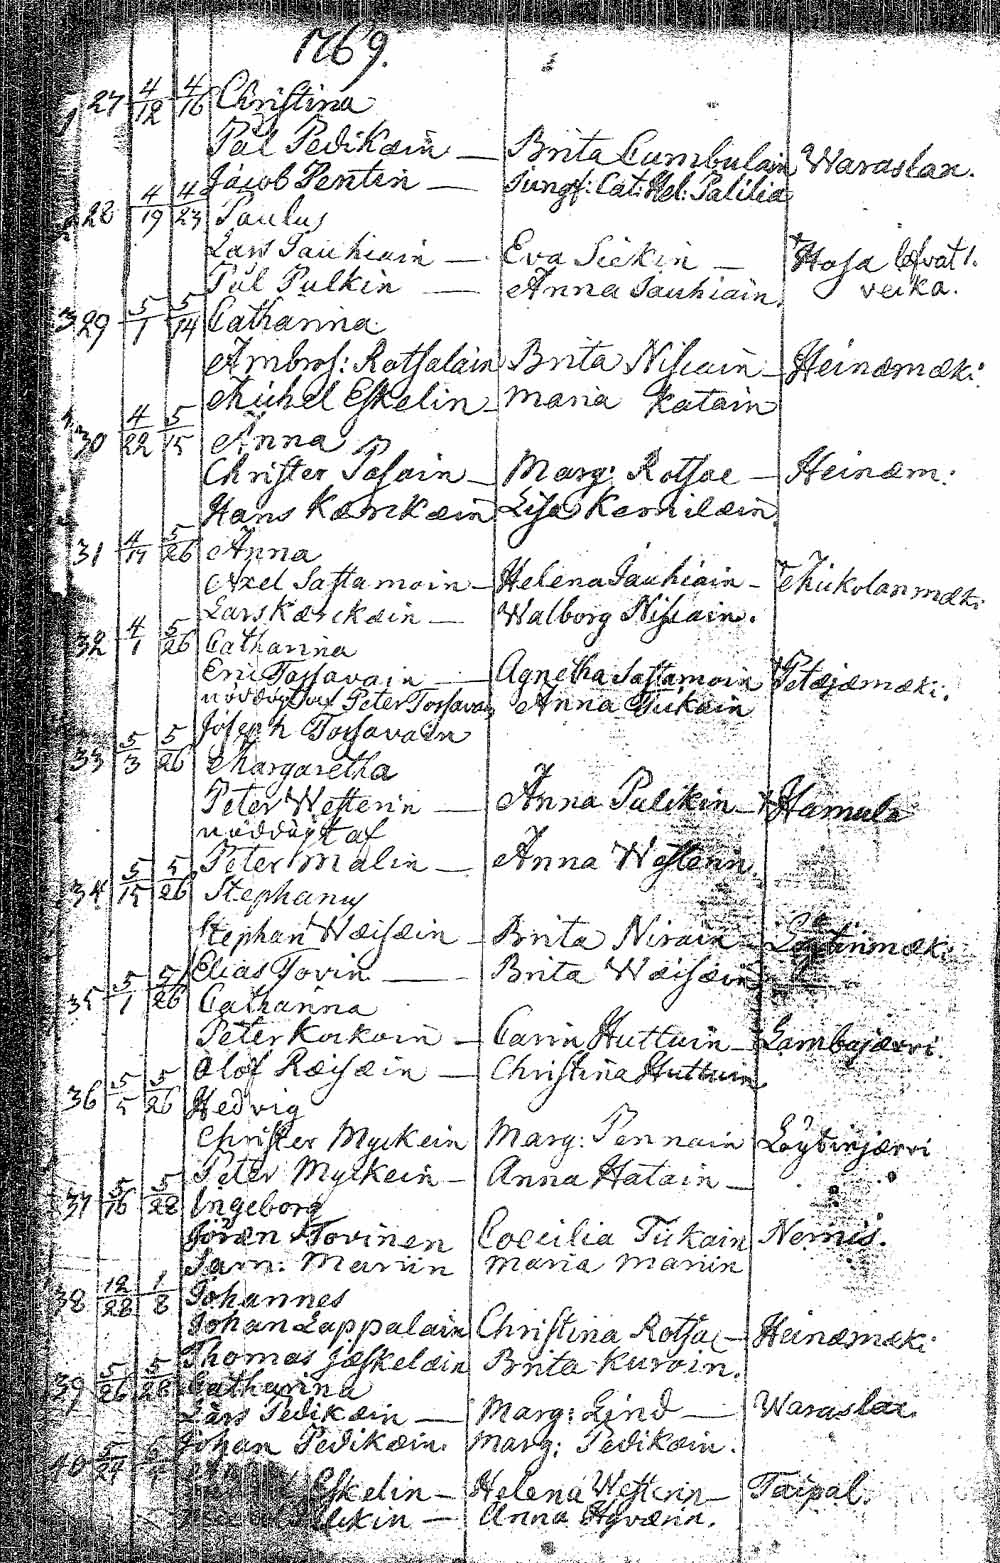 1769.
27 4/12 4/16 Christina
Pål Pedikæin — Brita Cumbulain Waraslax.
Jacob Pentin — Jungf: Cat: Hel: Palilia
28 4/19 4/23 Paulus
Lars Jauhiain — Eva Sickin — Hosa
Pål Pulkin — Anna Jauhiain.
29 5/1 5/14 Catharina
Ambros: Rotsalain Brita Nissain — Heinæmæki.
Michel Eskelin — Maria Katain
30 4/22 5/15 Anna
Christer Pasain — Marg: Rotsoe — Heinæm:
Hans Kærckæin Lisa Kemilæin.
31 4/17 5/26 Anna
Axel Sastamoin — Helena Jauhiain —
Lars Kærckæin — Walborg Nissain.
32 4/1 5/26 Catharina
Eric Tossavain — Agnetha Sastamoin Petæjæmæki.
nöddöpt af Peter Tossavain Anna Tiikain
Joseph Tossavain
33 5/3 5/26 Margaretha
Peter Westerin — Anna Pulkin — Hamula
nöddöpt af
Peter Malin — Anna Westerin.
34 5/15 5/26 Stephanus
Stephan Wæisæin — Brita Nirain — Löytinmæki
Elias Tovin — Brita Wæisæin
35 5/1 5/26 Catharina
Peter Korkoin — Carin Huttuin — Lambajærvi
Olof Ræisæin — Christina Huttuin
36 5/5 5/26 Hedvig
Christer Myckein Marg: Pennain Löytinjærvi
Peter Myckein — Anna Hatain —
37 5/16 5/28 Ingeborg
Jöran Tovinen Coecilia Tiikain Nemis.
Sam: Manin Maria Manin
38 12/28 1/8 Johannes
Johan Lappalain Christina Rotsa — Heinæmæki
Thomas Jæskelæin Brita Kuroin.
39 5/26 5/28 Catharina
Lars Pedikæin — Marg: Lind — Waraslax.
Johan Pedikæin. Marg: Pedikæin.
40 5/27
Eskelin — Helena Westerin — Taipal.
Anna Hyvæin.